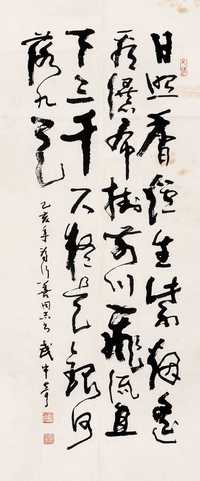 日照香炉生紫烟遥
看瀑布挂前川飞流直
下三千尺疑是银河
落九天
乙亥年为行善同志书 武中奇